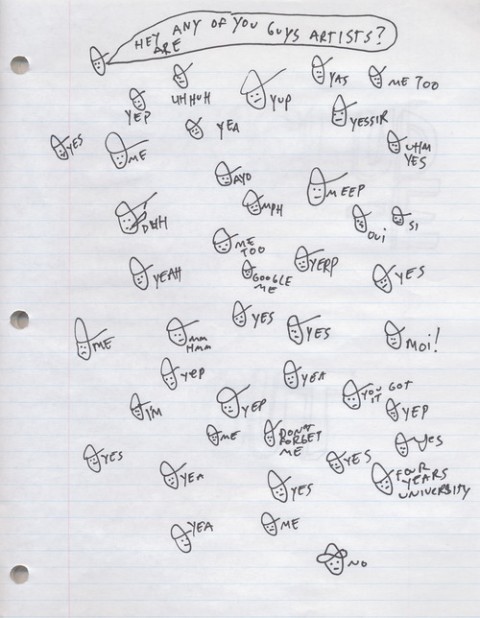 HEY ANY OF YOU GUYS ARTISTS?
ARE
YAS
ME TOO
UH HUH
YEP
YUP
YESSIR
YEA
YES
ME
UHM
YES
AYO
MEEP
MPH
DUH
OUI
SI
ME
TOO
YERP
YEAH
GOOGLE
ME
YES
YES
YES
ME
MM
HMM
MOI!
YEP
YEA
YOU GOT
IT
I'M
YEP
YEP
ME
DON'T
FORGET
ME
YES
YES
YES
YEA
YES
FOUR
YEARS
UNIVERSITY
YEA
ME
NO